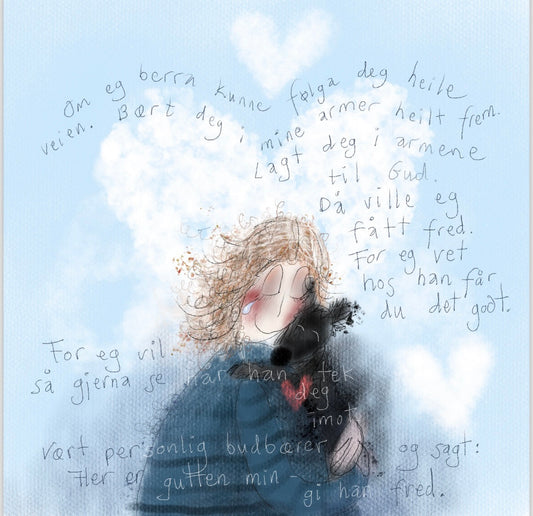 Om eg berra kunne følga deg heile
veien. Bært deg i mine armer heilt frem.
Lagt deg i armene
til Gud.
Då ville eg
fått fred.
For eg vet
hos han får
du det godt.
For eg vil
så gjerna se når han tek
deg
imot
Vært personlig budbærer og sagt:
Her er gutten min -
gi han fred.